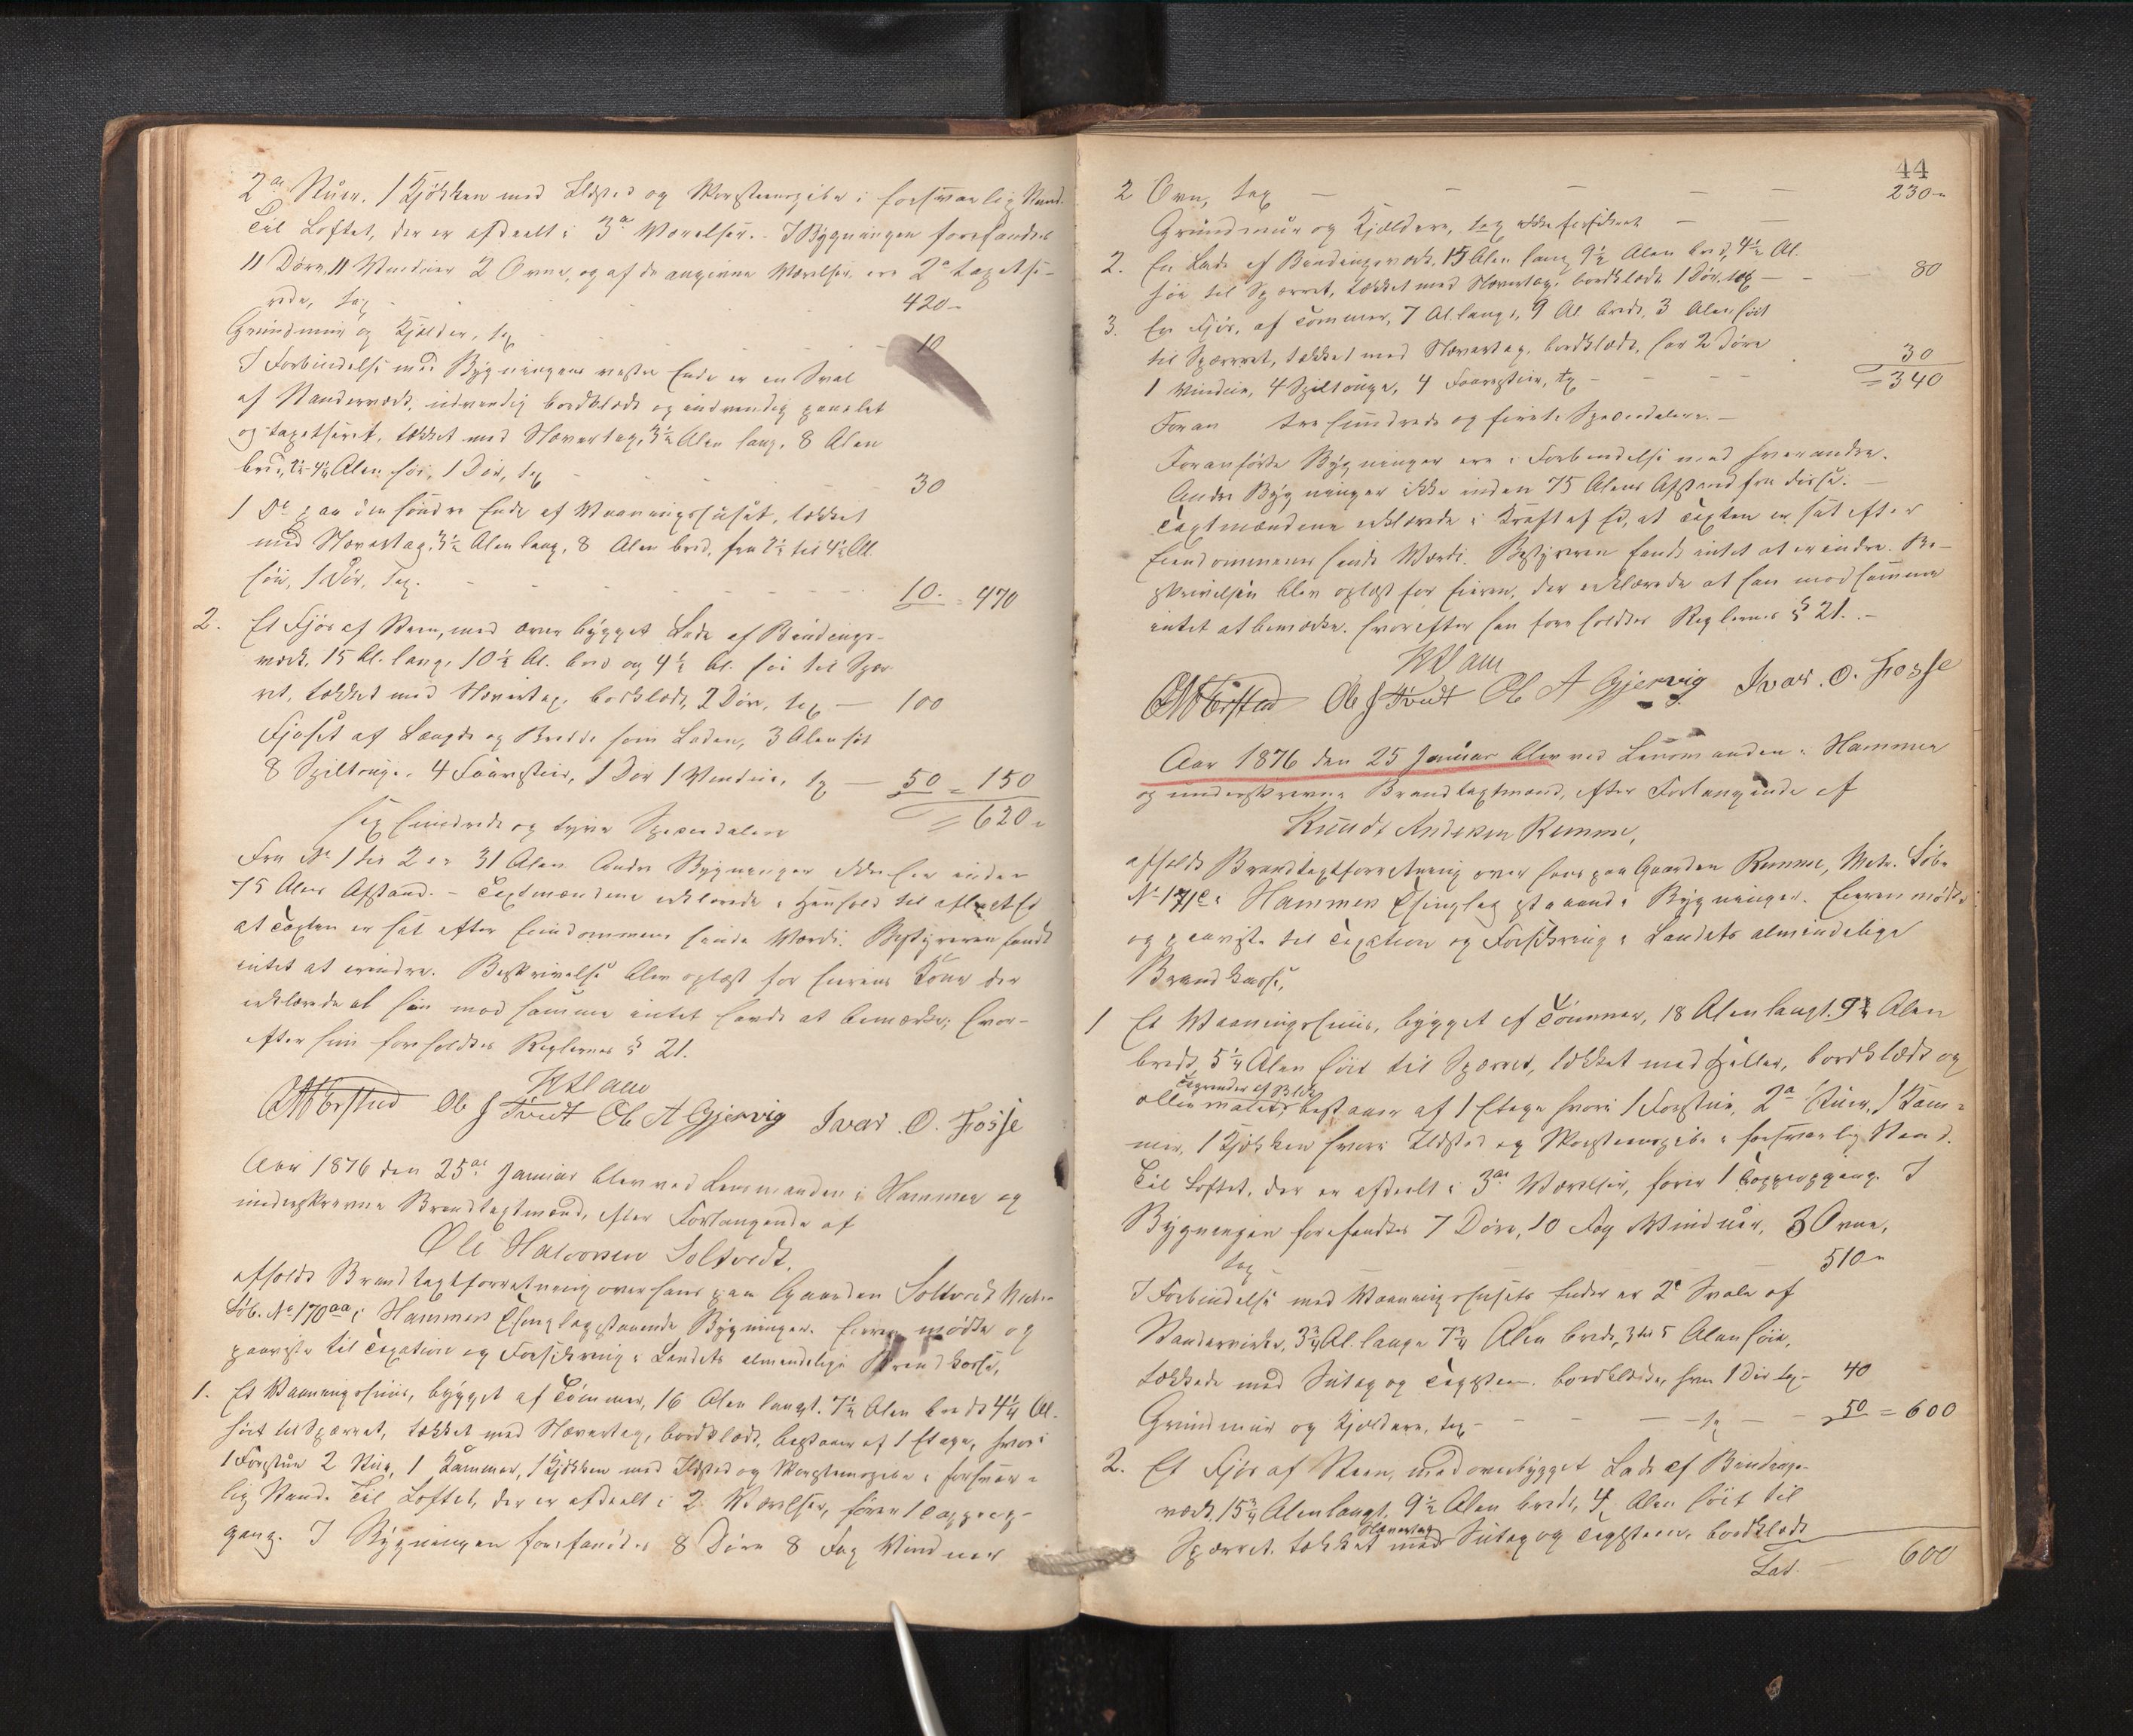 2de Stuer, 1 Kjøkken med Ildsted og Skorsteenspibe i forsvarlig Stand.
Til Loftet, der er afdeelt i 3de Værelser. I Bygningen forefandtes
11 Døre, 11 Vinduer 2 Ovne, og af de angivne Værelser ere 2de tapetse-
rede, tax 420 -
Grundmur og Kjelder, tax 10
I Forbindelse med Bygningens vestre Ende er en Sval
af Standerværk, udvendig bordklædt og indvendig panelet
og tapetseret, tækket med Nævertag, 3½ Alen lang, 8 Alen
bred, 4½ Alen høi, 1 Dør, tax 30
1 Do paa den søndre Ende af Vaaningshuset, tækket
med Nævertag, 3½ Alen lang, 8 Alen bred, fra 2½ til 4½ Al.
høi, 1 Dør, Tax. 10. = 470
2. Et Fjøs af Steen, med overbygget Lade af Bindings-
værk, 15 Al. lang, 10½ Al. bred og 4½ Al. høi til Spær-
ret, tækket med Nævertag, bordklædt, 2 Døre, tax — 100
Fjøset af Længde og Bredde som Laden, 3 Alen høit
8 Spiltouge, 4 Faarestier, 1 Dør 1 Vindue, tx — 50 = 150
= 620 -
sex hundrede og tyve Speciedaler
Fra No 1 til 2 er 31 Alen. Andre Bygninger ikke inden
75 Alens Afstand. - Taxtmændene erklærede i Henhold til aflagt Ed
at Taxten er sat efter Eiendommens sande Værdi. Bestyreren fandt
intet at erindre. Beskrivelse blev oplæst for Eierens Kone der
erklærede at hun mod samme intet havde at bemærke; hvor-
efter hun foreholdtes Reglernes § 21.
Ole J Tvedt Ole A Gjervig Ivar. O. Fosse
Aar 1876 den 25de Januar blev ved Lensmanden i Hammer og
underskrevne Brandtaxtmænd, efter Forlangende af
Ole Halvorsen Soltvedt,
afholdt Brandtaxtforretning over hans paa Gaarden Soltvedt Matr.
Løb. No 170aa i Hammers Thinglag staaende Bygninger. Eieren mødte og
paaviste til Taxation og Forsikring i Landets almindelige Brandkasse,
1. Et Vaaningshuus, bygget af Tømmer, 16 Alen langt, 7½ Alen bredt 4¼ Al.
høit til Spærret, tækket med Nævertag, bordklædt, bestaaer af 1 Etage, hvori
1 Forstue 2 Stuer, 1 Kammer, 1 Kjøkken med Ildsted og Skorsteenspibe i forsvar-
lig Stand. Til Loftet, der er afdeelt i 2 Værelser, fører 1 Trappeop-
gang. I Bygningen forefandtes 8 Døre 8 Fag Vinduer
44
2 Ovne, tax — 230 -
Grundmur og Kjeldere, tax ikke forsikret —
2. En Lade af Bindingsværk, 15 Alen lang 9½ Alen bred, 4½ Al.
høi til Spærret, tækket med Nævertag, bordklædt, 1 Dør, tax — 80
3. En Fjøs, af Tømmer, 7 Al. langt, 9 Al. bredt, 3 Alen høit
til Spærret, tækket med Nævertag, bordklædt, har 2 Døre
1 Vindue, 4 Spiltouge, 4 Faarestier, tx - 30
= 340
Foran tre hundrede og firti Speciedaler. -
Foranførte Bygninger ere i Forbindelse med hverandre.
Andre Bygninger ikke inden 75 Alens Afstand fra disse. -
Taxtmændene erklærede i Kraft af Ed, at Taxten er sat efter
Eiendommens sande Værdi. Bestyreren fandt intet at erindre. Be-
skrivelsen blev oplæst for Eieren, der erklærede at han mod samme
intet at bemærke. hvorefter han foreholdtes Reglernes § 21. -
Ole J Tvedt Ole A Gjervig Ivar. O. Fosse
Aar 1876 den 25 Januar blev ved Lensmanden i Hammer
og underskrevne Brandtaxtmænd, efter Forlangende af
Knudt Andersen Remme,
afholdt Brandtaxtforretning over hans paa Gaarden Remme, Matr. Løb.
No 171c i Hammers Thinglag staaende Bygninger. Eieren mødte
og paaviste til Taxation og Forsikring i Landets almindelige
Brandkasse,
1 Et Vaaningshuus, bygget af Tømmer, 18 Alen langt, 9¾ Alen
bredt, 5¼ Alen høit til Spærret, tækket med Heller, bordklædt og
oliemalet, bestaaer af 1 Etage hvori 1 Forstue, 2de Stuer, 1 Kam-
mer, 1 Kjøkken hvori Ildsted og Skorsteenspibe i forsvarlig Stand.
Til Loftet, der er afdeelt i 3de Værelser, fører 1 Trappeopgang. I
Bygningen forefandtes 7 Døre, 10 Fag Vinduer, 3 Ovne,
tax 510 -
I Forbindelse med Vaaningshusets Ender er 2de Svale af
Standerværk, 3¾ Al. lange 7¾ Alen brede, 3 til 5 Alen høie,
tækkede med Sutag og Tagsteen, bordklædte, hver 1 Dør tx - 40
Grundmur og Kjeldere, tax - 50 = 600
2. Et Fjøs af Steen, med overbygget Lade af Bindings-
værk, 15¾ Alen langt, 9½ Alen bredt, 4 Alen høit til
Spærret, tækket med Nævertag Sutag og Tagsteen, bordklædt
Lat. 600